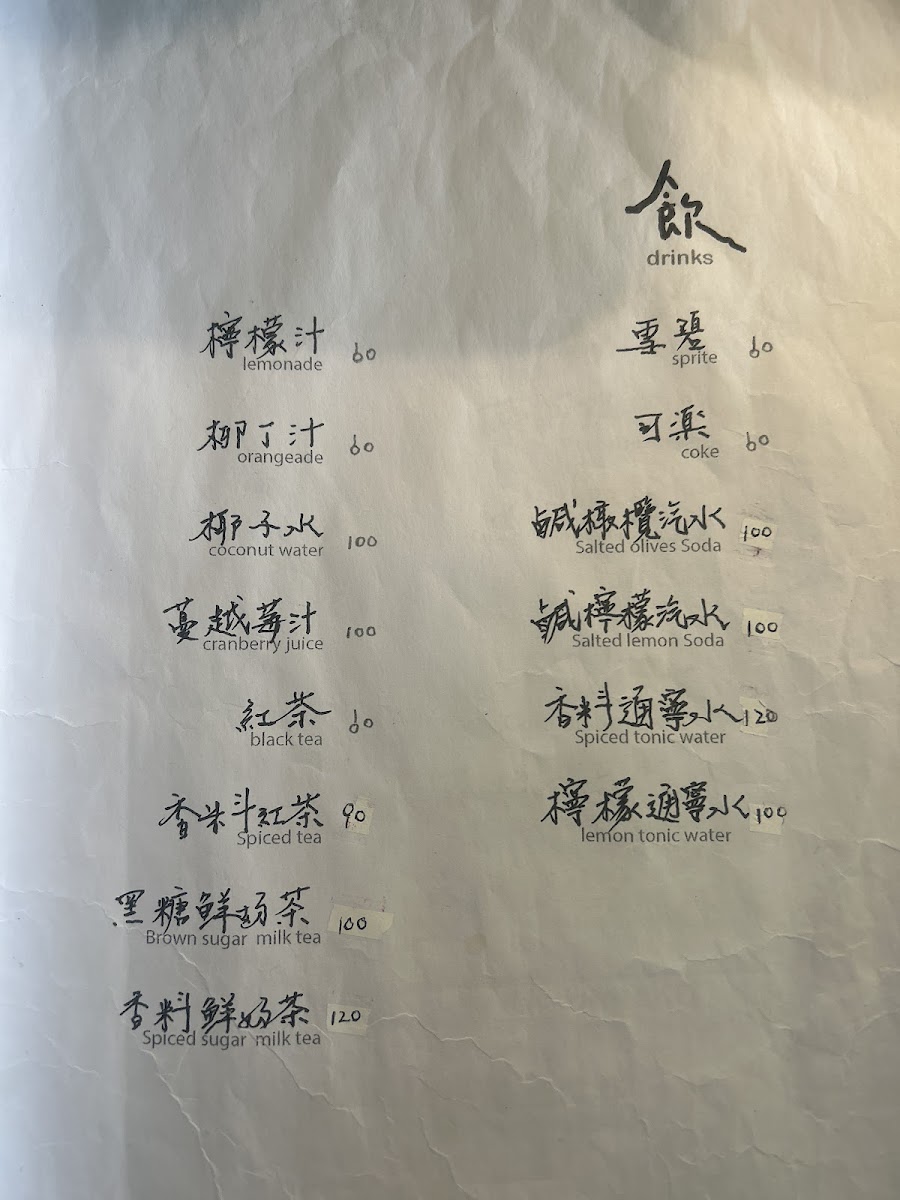 飲
drinks
檸檬汁 60
lemonade
柳丁汁 60
orangeade
椰子水 100
coconut water
蔓越莓汁 100
cranberry juice
紅茶 60
black tea
香料紅茶 90
Spiced tea
黑糖鮮奶茶 100
Brown sugar milk tea
香料鮮奶茶 120
Spiced sugar milk tea
雪碧 60
sprite
可楽 60
coke
鹹橄欖汽水 100
Salted olives Soda
鹹檸檬汽水 100
Salted lemon Soda
香料通寧水 120
Spiced tonic water
檸檬通寧水 100
lemon tonic water